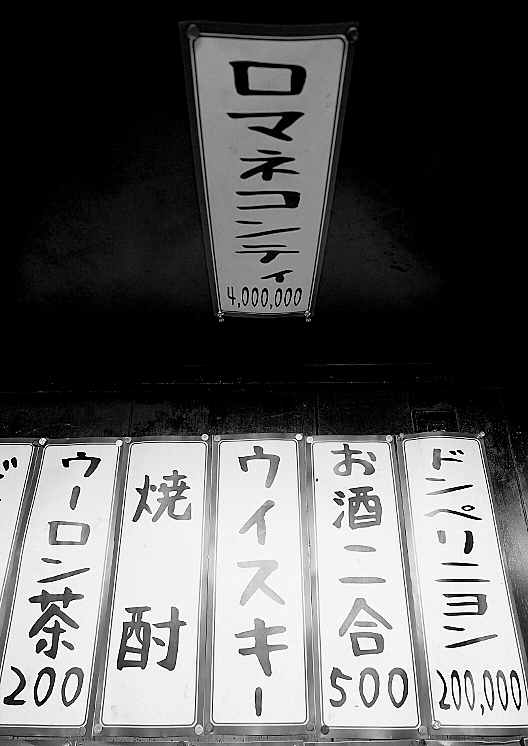 ロマネコンティ
4,000,000
ドンペリニヨン
200,000
お酒二合
500
ウイスキー
焼酎
ウーロン茶
200